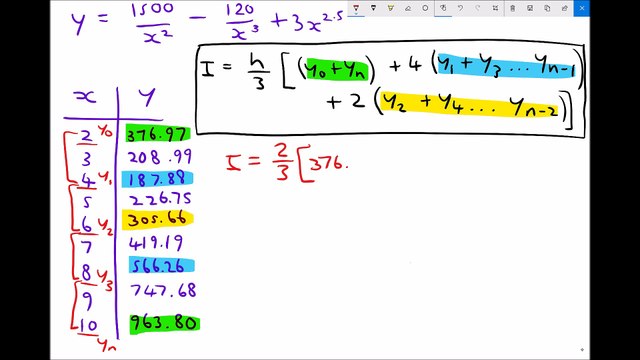 y = 1500/x² - 120/x³ + 3x^2.5
I = h/3 [(y₀ + yₙ) + 4 (y₁ + y₃ ... yₙ₋₁)
+ 2 (y₂ + y₄ ... yₙ₋₂)]
x y
2 y₀ 376.97
3 208.99
4 y₁ 187.88
5 226.75
6 y₂ 305.66
7 419.19
8 y₃ 566.26
9 747.68
10 963.80
yₙ
I = 2/3 [376.